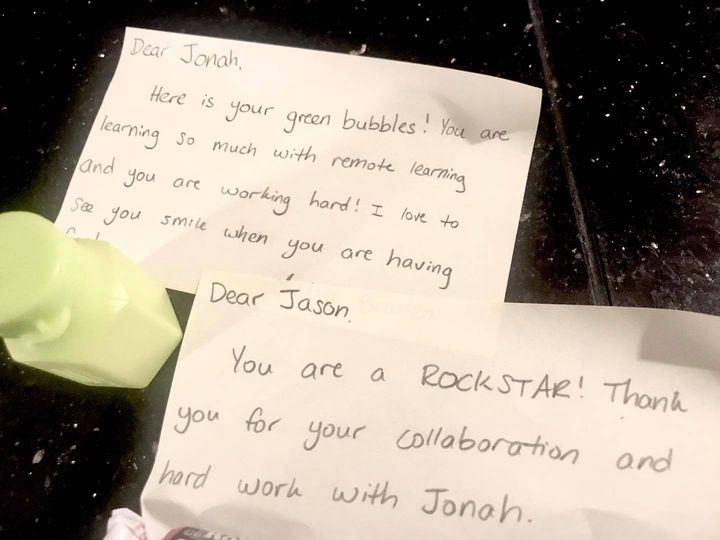 Dear Jonah,
Here is your green bubbles! You are
learning so much with remote learning
and you are working hard! I love to
see you smile when you are having
Dear Jason,
You are a ROCKSTAR! Thank
you for your collaboration and
hard work with Jonah.